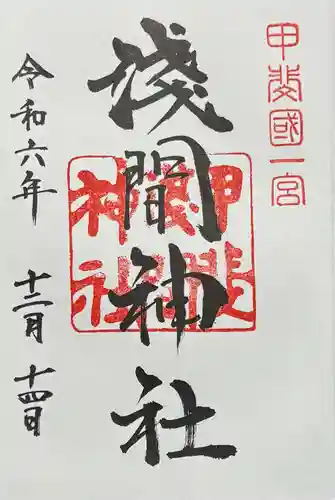 甲斐國一宮
淺間神社
甲斐
淺間
神社
令和六年 十二月 十四日